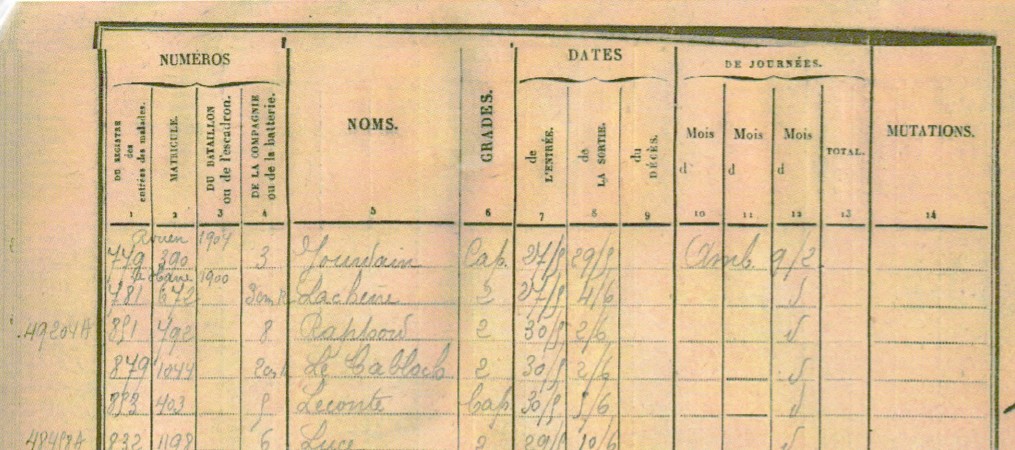 NUMÉROS DATES DE JOURNÉES.
DU REGISTRE des entrées des malades. MATRICULE. DU BATAILLON ou de l'escadron. DE LA COMPAGNIE ou de la batterie. NOMS. GRADES. de L'ENTRÉE. de LA SORTIE. du DÉCÈS. Mois d Mois d Mois d TOTAL. MUTATIONS.
1 2 3 4 5 6 7 8 9 10 11 12 13 14
Rouen 1904
779 390 3 Jourdain Cap. 27/5 29/5 Amb. 9/2
1900
781 672 2 27/5 4/6
49204A 492 8 2 30/5 2/6
879 1044 2 30/5 2/6
403 5 Leconte Cap 30/5 /6
832 1198 6 Luce 2 29/5 10/6